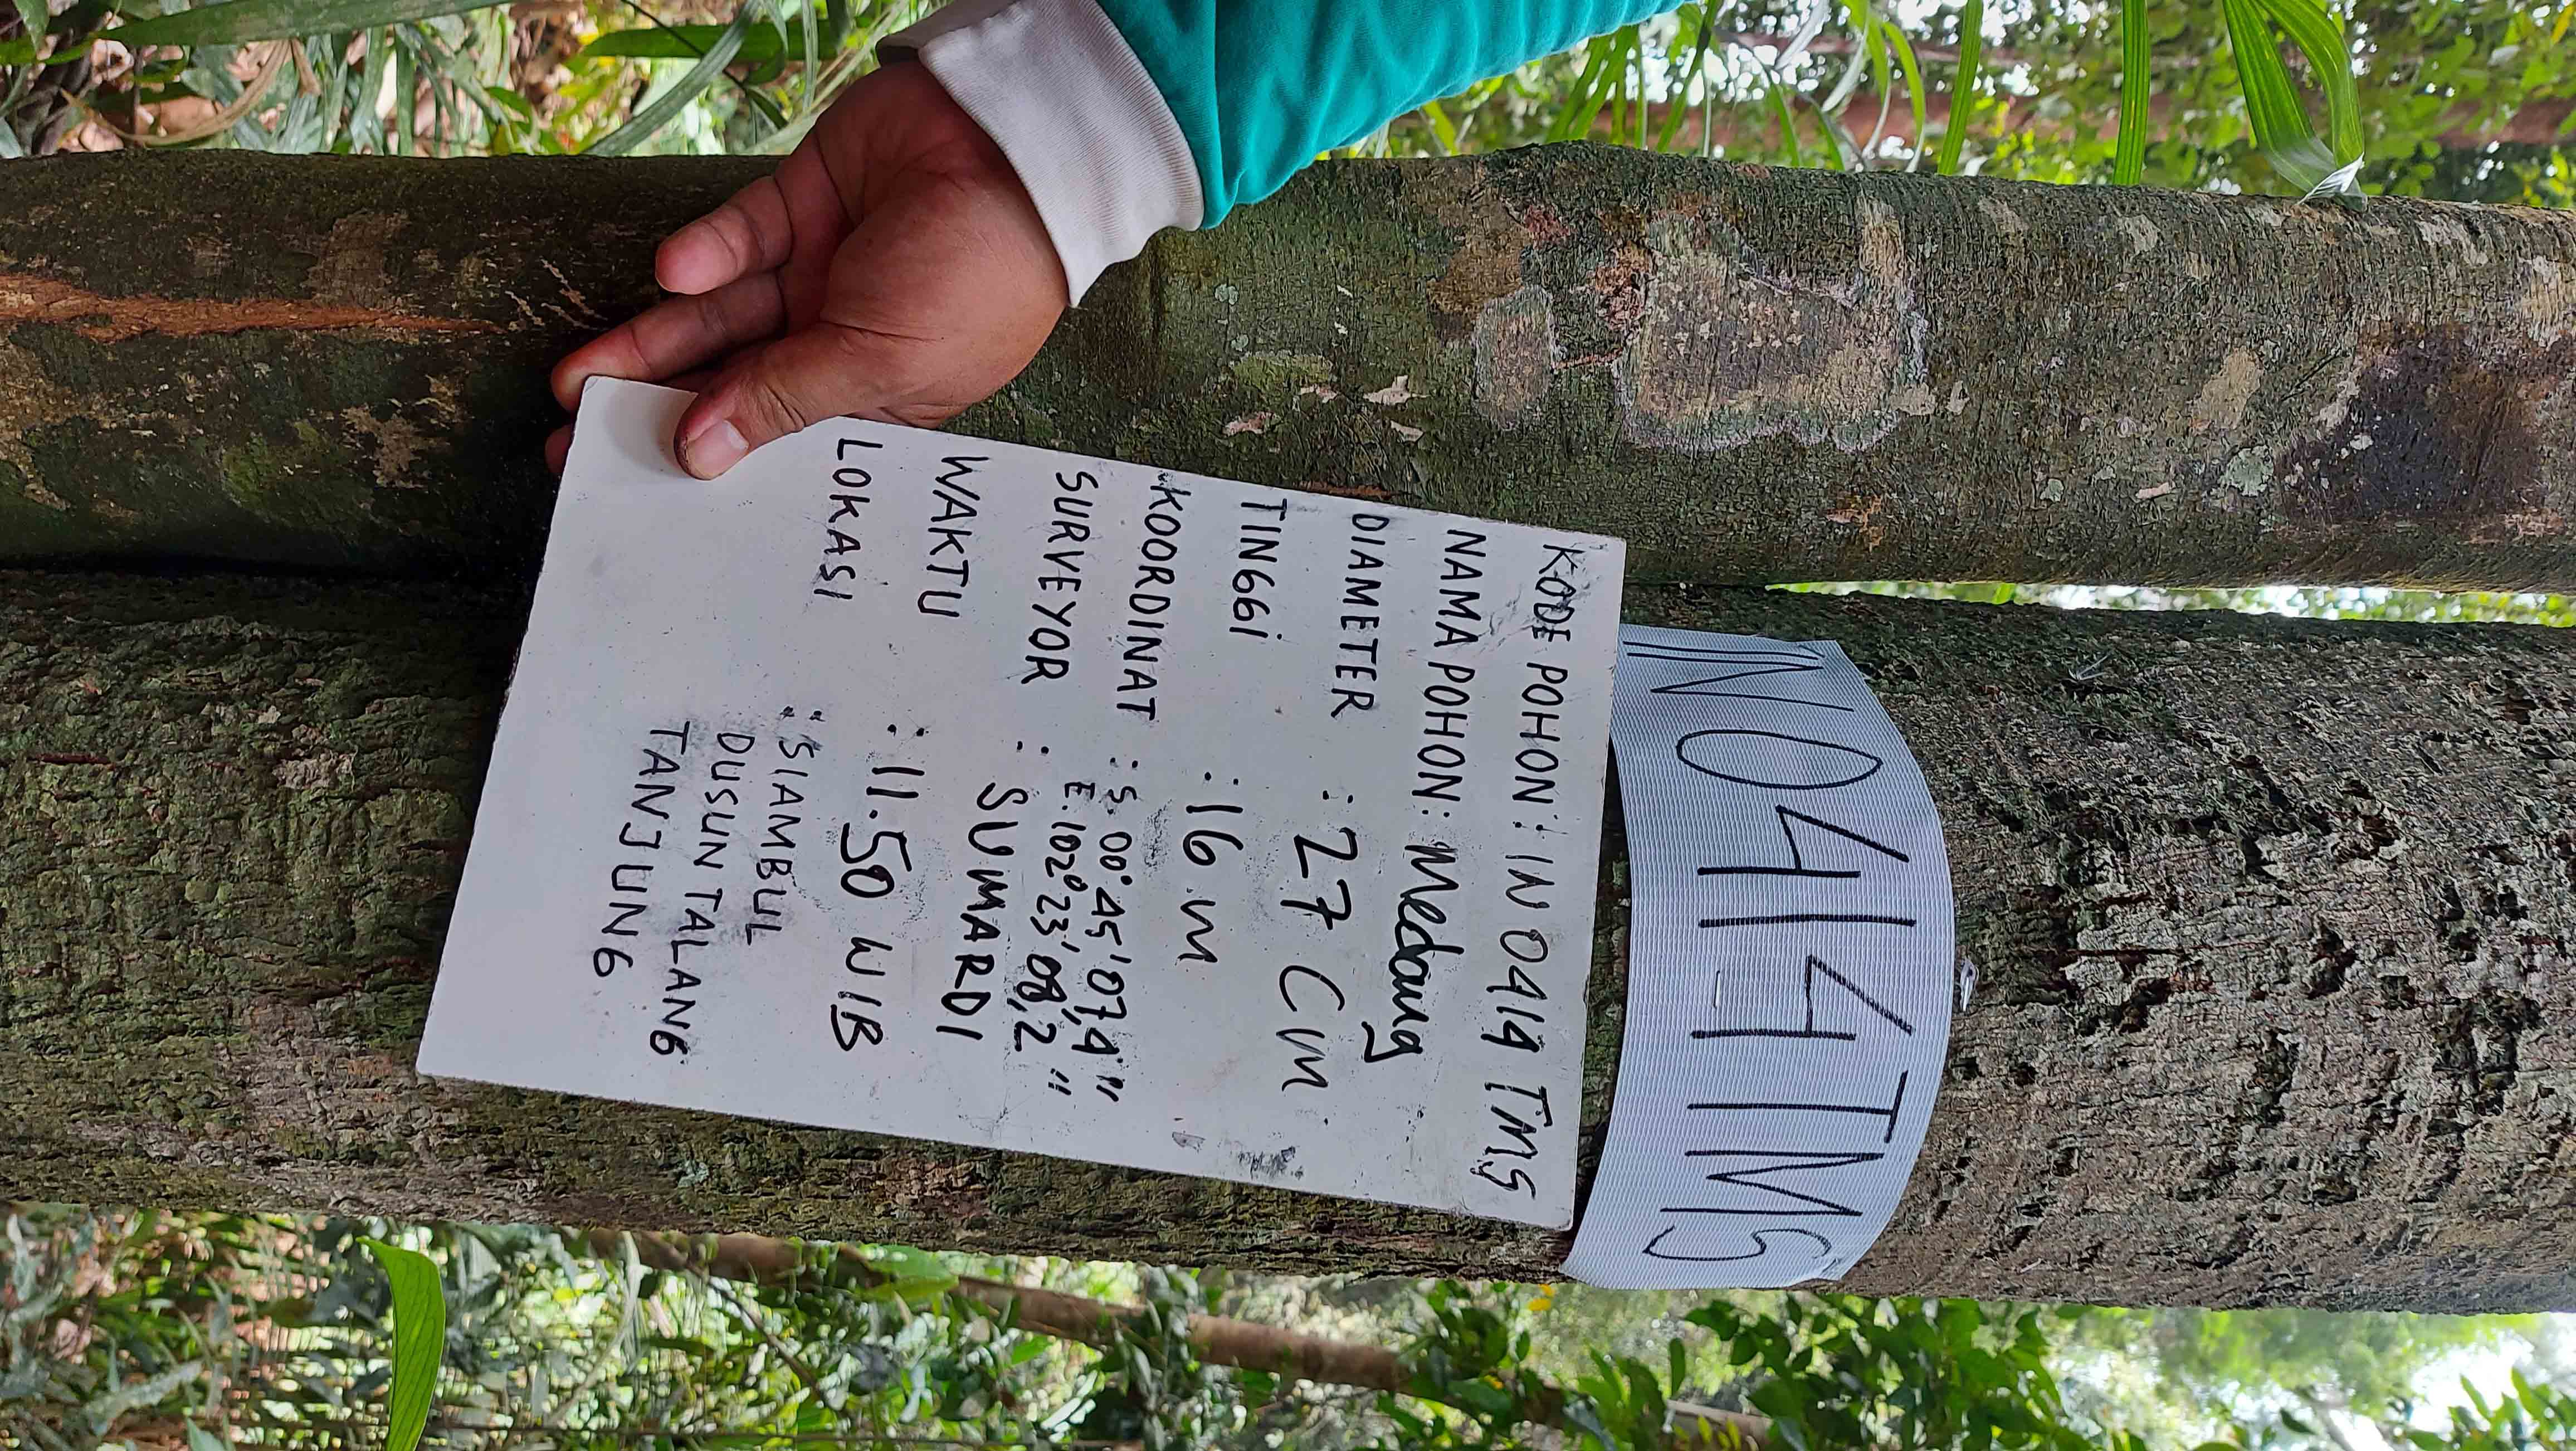 IN 0414 TMS
KODE POHON : IN 0414 TMS
NAMA POHON : Medang
DIAMETER : 27 Cm
TINGGi : 16 m
KOORDINAT : S. 00° 45' 07,4"
E. 102° 23' 08,2"
SURVEYOR : SUMARDI
WAKTU : 11.50 WIB
LOKASI : SIAMBUL
DUSUN TALANG
TANJUNG